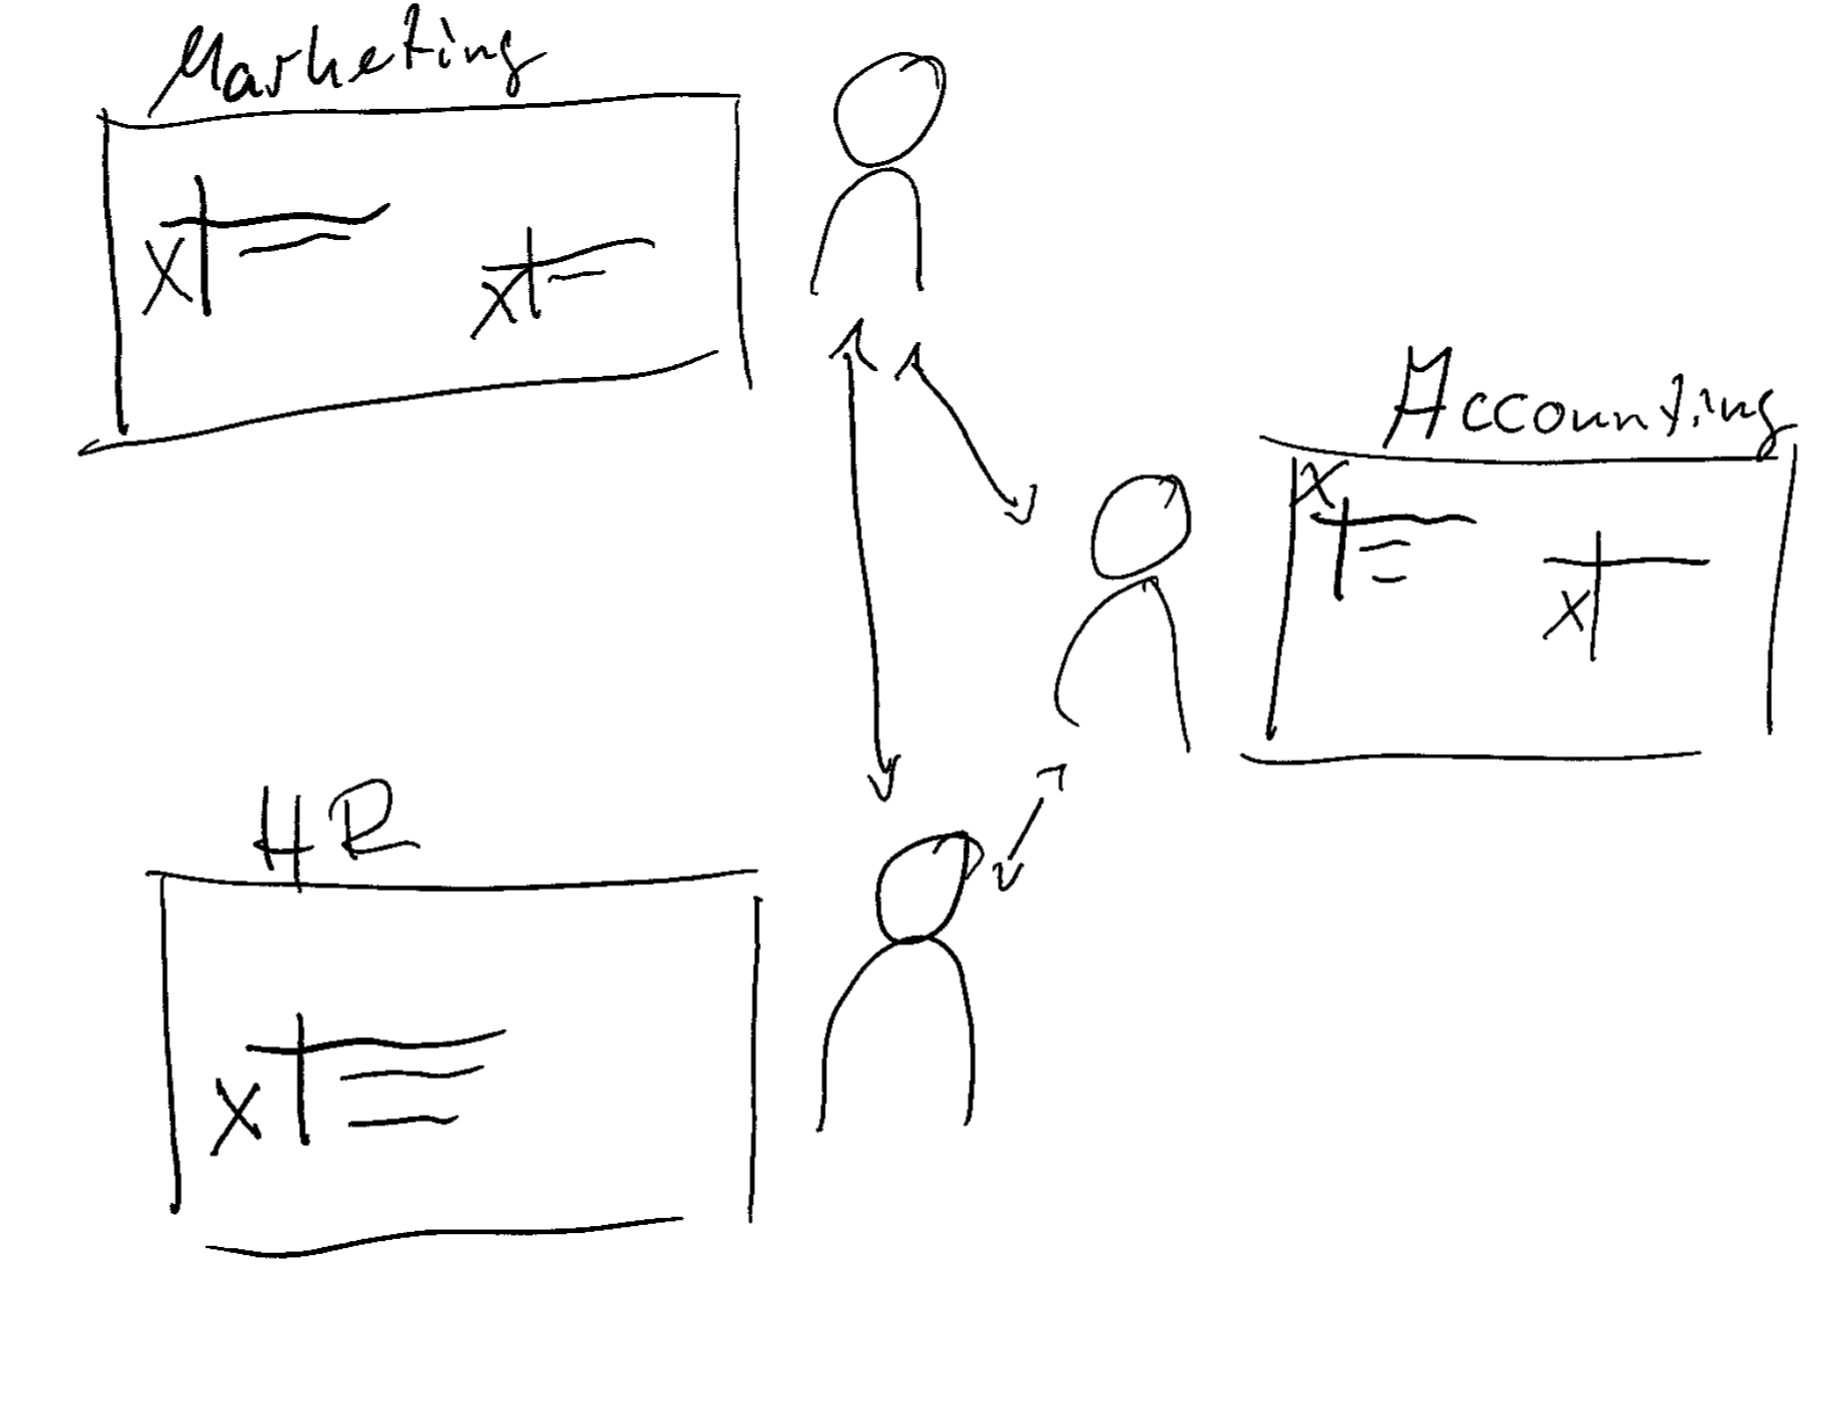 Marketing
X
X
Accounting
X
X
HR
X